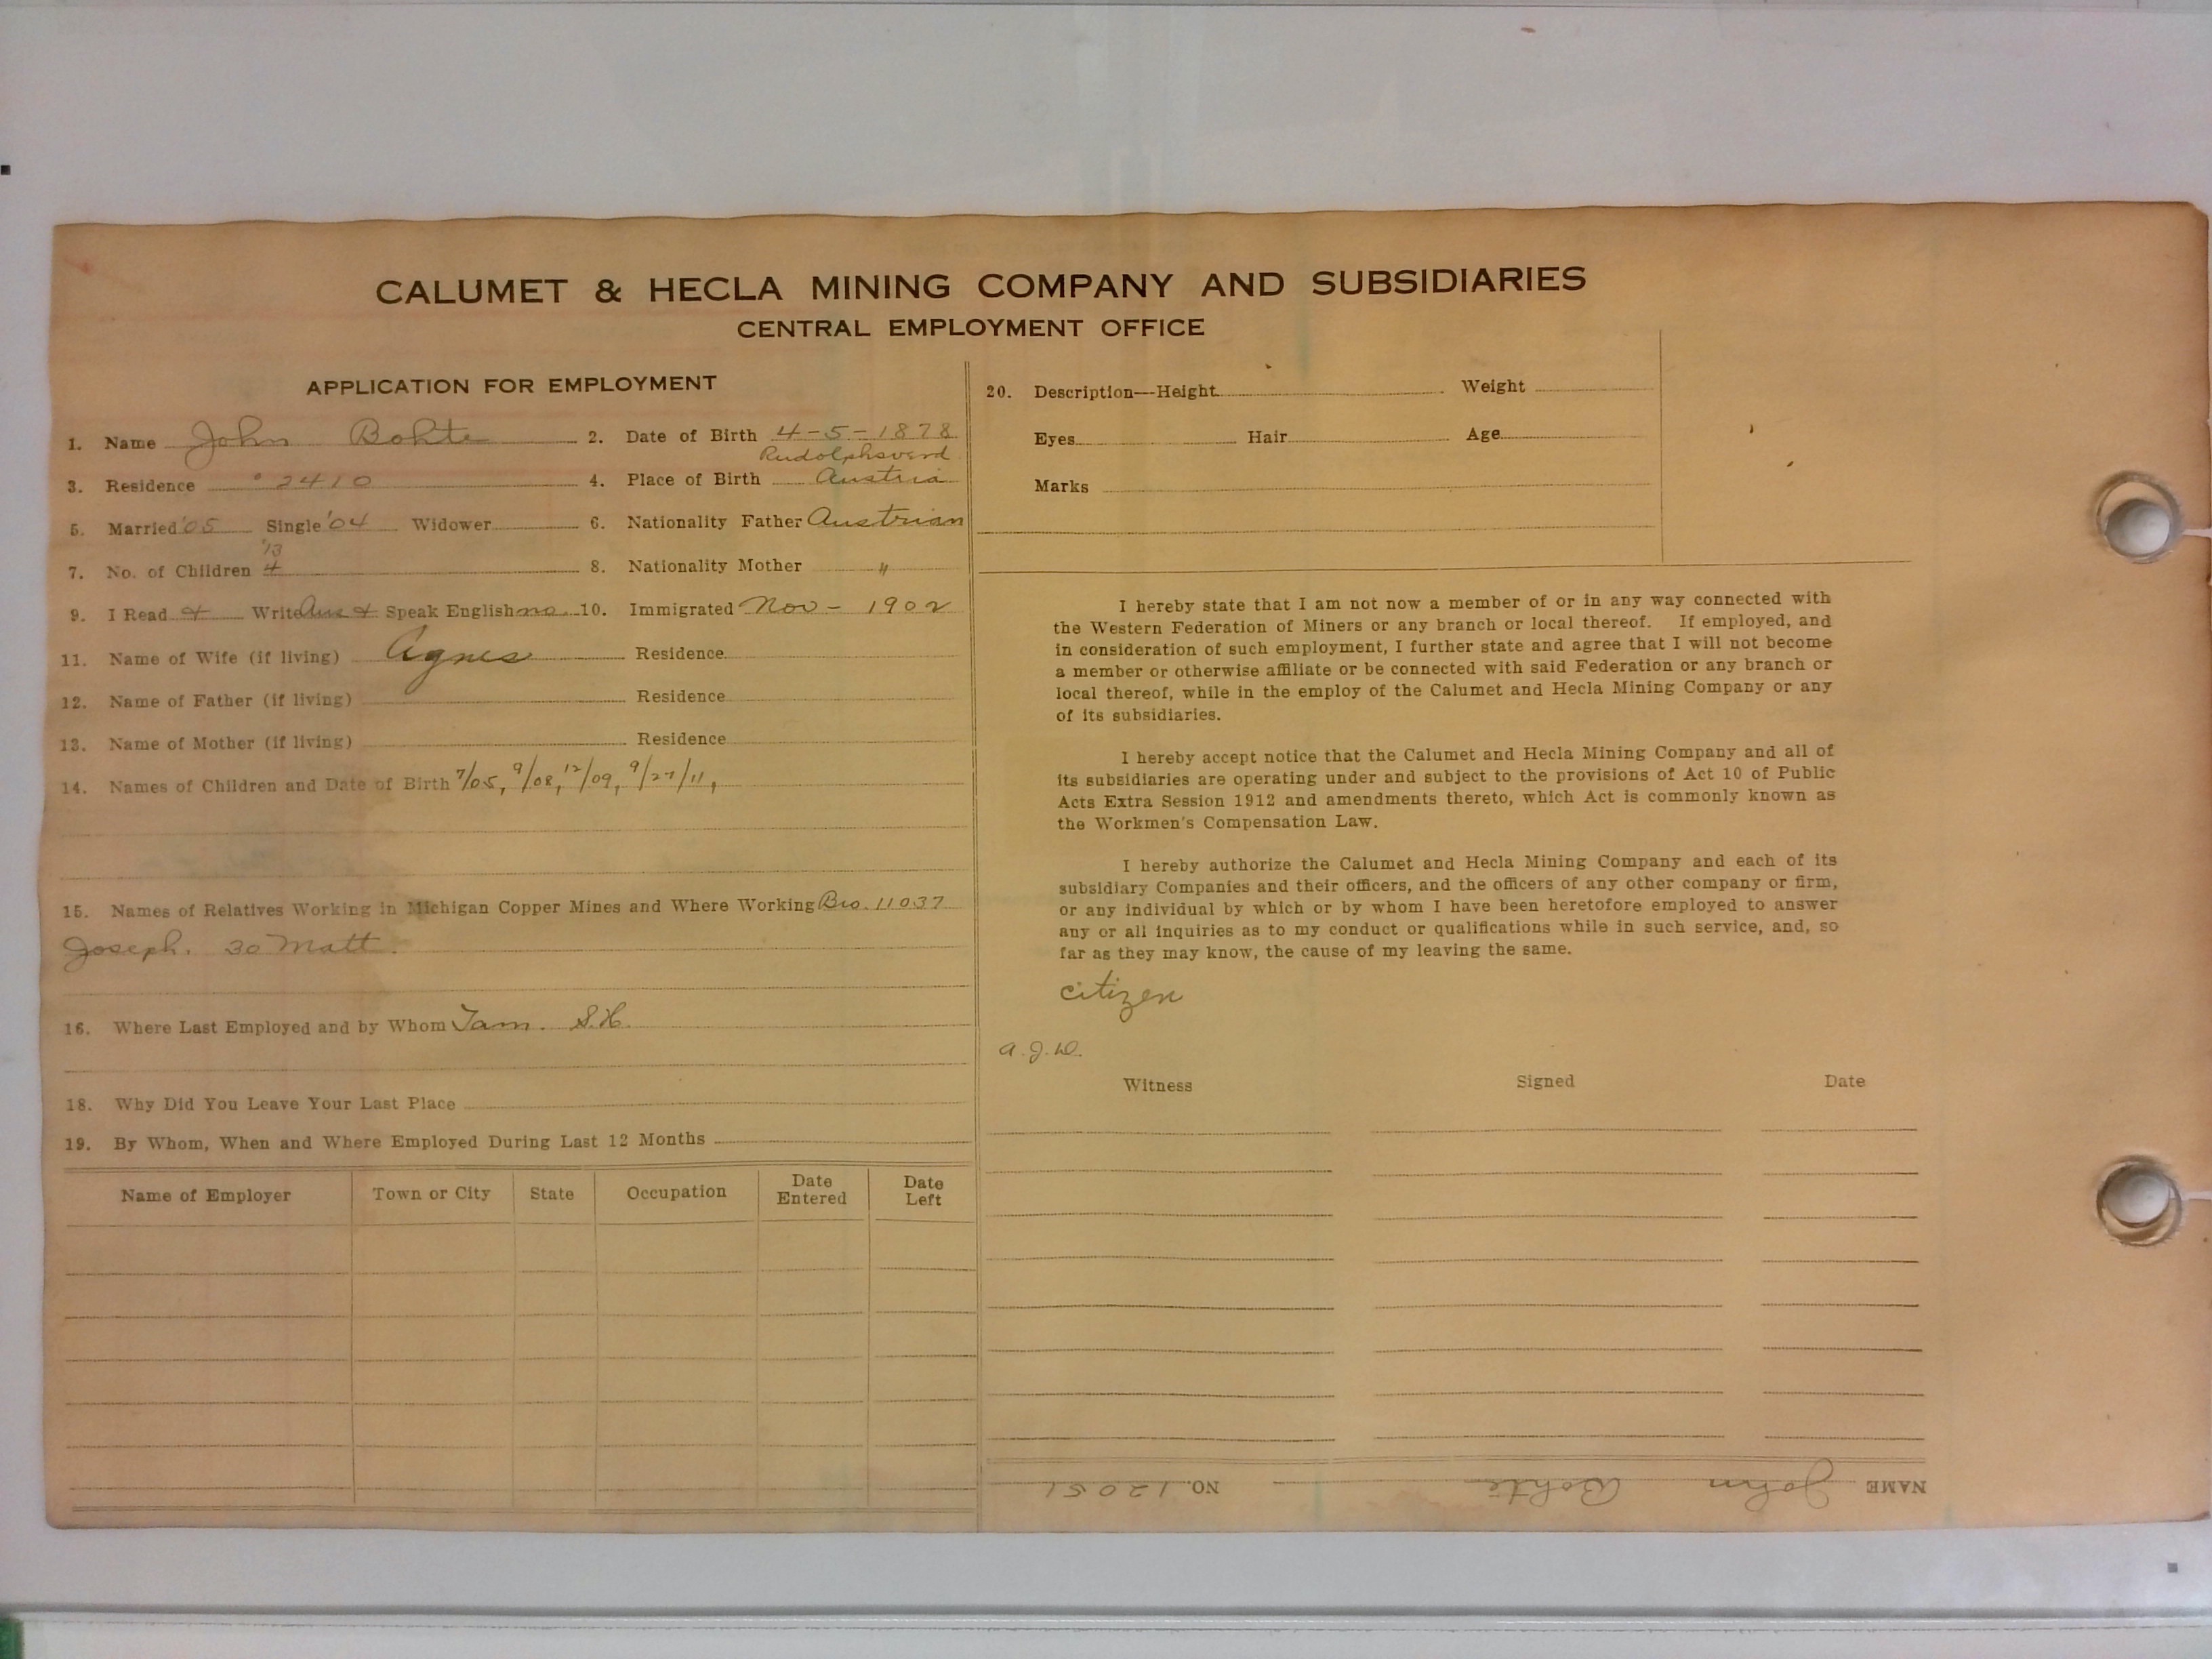 CALUMET & HECLA MINING COMPANY AND SUBSIDIARIES
CENTRAL EMPLOYMENT OFFICE
APPLICATION FOR EMPLOYMENT
1. Name John Bohte 2. Date of Birth 4-5-1878
3. Residence 2410 4. Place of Birth Austria
5. Married '05 Single '04 Widower 6. Nationality Father Austrian
'13
7. No. of Children 4 8. Nationality Mother "
9. I Read & Write Aus & Speak English no 10. Immigrated Nov - 1902
11. Name of Wife (if living) Agnes Residence
12. Name of Father (if living) Residence
13. Name of Mother (if living) Residence
14. Names of Children and Date of Birth 7/05, 9/08, 12/09, 9/27/11,
15. Names of Relatives Working in Michigan Copper Mines and Where Working Bro. 11037
Joseph. 30 Matt.
16. Where Last Employed and by Whom Tam. S.H.
18. Why Did You Leave Your Last Place
19. By Whom, When and Where Employed During Last 12 Months
Name of Employer Town or City State Occupation Date Entered Date Left
20. Description—Height Weight
Eyes Hair Age
Marks
I hereby state that I am not now a member of or in any way connected with
the Western Federation of Miners or any branch or local thereof. If employed, and
in consideration of such employment, I further state and agree that I will not become
a member or otherwise affiliate or be connected with said Federation or any branch or
local thereof, while in the employ of the Calumet and Hecla Mining Company or any
of its subsidiaries.
I hereby accept notice that the Calumet and Hecla Mining Company and all of
its subsidiaries are operating under and subject to the provisions of Act 10 of Public
Acts Extra Session 1912 and amendments thereto, which Act is commonly known as
the Workmen's Compensation Law.
I hereby authorize the Calumet and Hecla Mining Company and each of its
subsidiary Companies and their officers, and the officers of any other company or firm,
or any individual by which or by whom I have been heretofore employed to answer
any or all inquiries as to my conduct or qualifications while in such service, and, so
far as they may know, the cause of my leaving the same.
citizen
a.J.W.
Witness Signed Date
NAME John Bohte NO. 12051